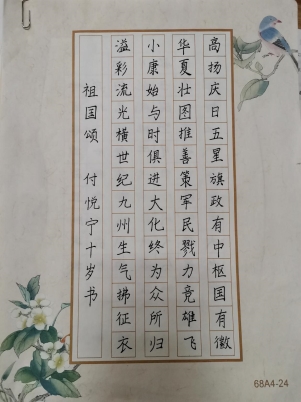 高扬庆日五星旗政有中枢国有徽
华夏壮图推善策军民戮力竞雄飞
小康始与时俱进大化终为众所归
溢彩流光横世纪九州生气拂征衣
祖国颂 付悦宁十岁书
68A4-24